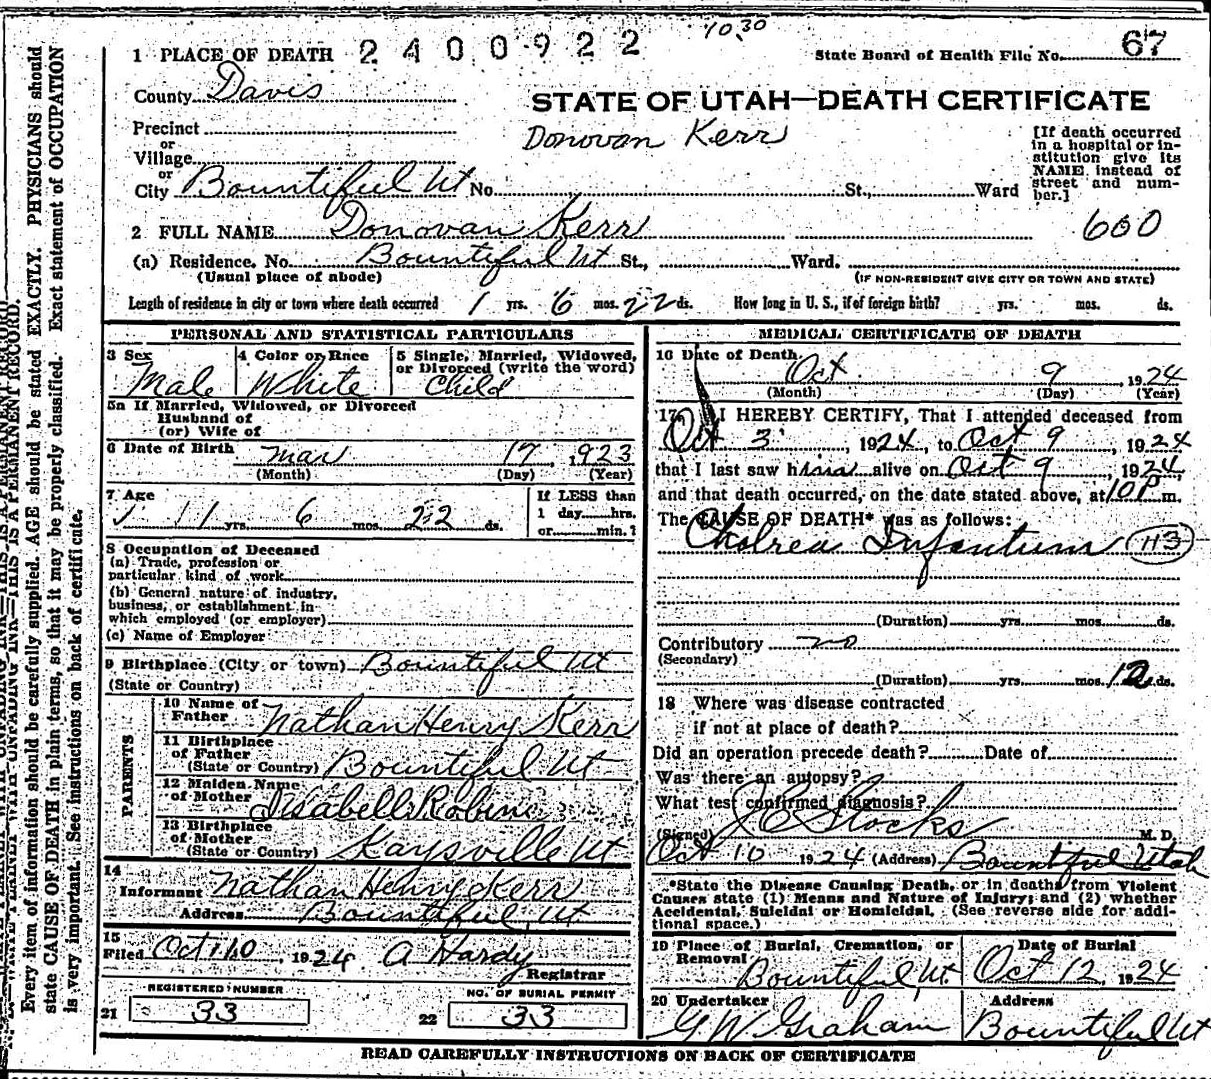 2400922
10 30
State Board of Health File No. 67
1 PLACE OF DEATH
County Davis
STATE OF UTAH—DEATH CERTIFICATE
Donovan Kerr
Precinct
or
Village
or
City Bountiful Ut No. St., Ward
[If death occurred
in a hospital or in-
stitution give its
NAME instead of
street and num-
ber.]
2 FULL NAME Donovan Kerr
600
(a) Residence. No. Bountiful Ut St., Ward.
(Usual place of abode) (IF NON-RESIDENT GIVE CITY OR TOWN AND STATE)
Length of residence in city or town where death occurred 1 yrs. 6 mos. 22 ds. How long in U. S., if of foreign birth? yrs. mos. ds.
PERSONAL AND STATISTICAL PARTICULARS
3 Sex Male
4 Color or Race White
5 Single, Married, Widowed,
or Divorced (write the word)
Child
5a If Married, Widowed, or Divorced
Husband of
(or) Wife of
6 Date of Birth Mar 17, 1923
(Month) (Day) (Year)
7 Age
1 yrs. 6 mos. 22 ds.
If LESS than
1 day hrs.
or min.?
8 Occupation of Deceased
(a) Trade, profession or
particular kind of work
(b) General nature of industry,
business, or establishment in
which employed (or employer)
(c) Name of Employer
9 Birthplace (City or town) Bountiful Ut
(State or Country)
PARENTS
10 Name of
Father Nathan Henry Kerr
11 Birthplace
of Father
(State or Country) Bountiful Ut
12 Maiden Name
of Mother Issabell Robins
13 Birthplace
of Mother
(State or Country) Kaysville Ut
14
Informant Nathan Henry Kerr
Address Bountiful, Ut
15
Filed Oct 10, 1924 A Hardy
Registrar
REGISTERED NUMBER
21 33
NO. OF BURIAL PERMIT
22 33
MEDICAL CERTIFICATE OF DEATH
16 Date of Death
Oct 9, 1924
(Month) (Day) (Year)
17 I HEREBY CERTIFY, That I attended deceased from
Oct 3, 1924, to Oct 9, 1924
that I last saw him alive on Oct 9, 1924,
and that death occurred, on the date stated above, at 10 P m.
The CAUSE OF DEATH* was as follows:
Cholrea Infantum 113
(Duration) yrs. mos. ds.
Contributory no
(Secondary)
(Duration) yrs. mos. 12 ds.
18 Where was disease contracted
if not at place of death?
Did an operation precede death? Date of
Was there an autopsy?
What test confirmed diagnosis?
(Signed) J C Stocks M. D.
Oct 10 1924 (Address) Bountiful Utah
*State the Disease Causing Death, or in deaths from Violent
Causes state (1) Means and Nature of Injury; and (2) whether
Accidental, Suicidal or Homicidal. (See reverse side for addi-
tional space.)
19 Place of Burial, Cremation, or
Removal
Bountiful, Ut
Date of Burial
Oct 12, 1924
20 Undertaker
G W Graham
Address
Bountiful Ut
READ CAREFULLY INSTRUCTIONS ON BACK OF CERTIFICATE
THIS IS A PERMANENT RECORD.
Every item of information should be carefully supplied. AGE should be stated EXACTLY. PHYSICIANS should
state CAUSE OF DEATH in plain terms, so that it may be properly classified. Exact statement of OCCUPATION
is very important. See instructions on back of certificate.